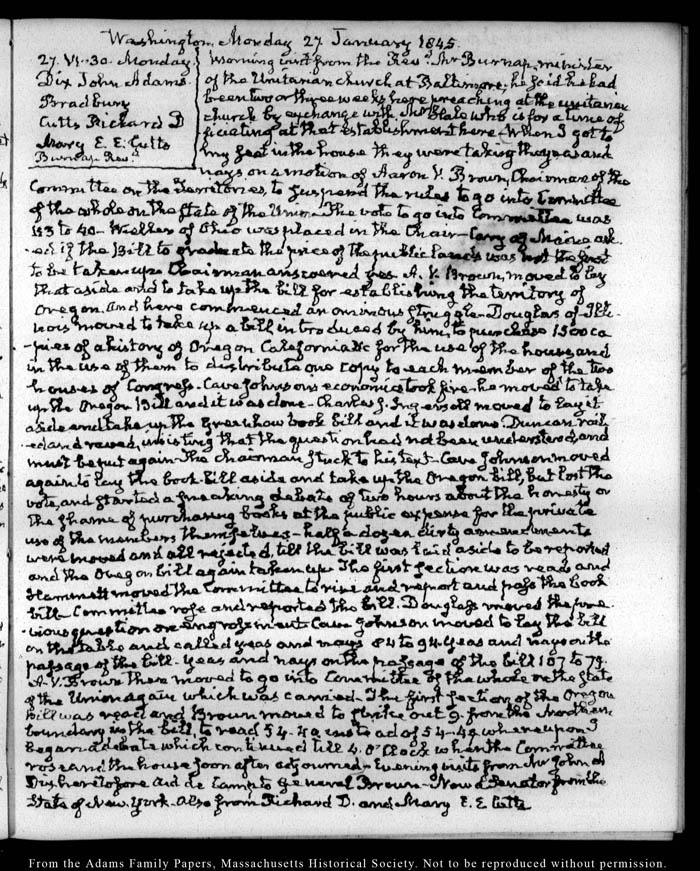 Washington, Monday 27 January 1845.
27. VI..30. Monday.
Dix John Adams.
Bradbury
Cutts Richard D
Mary E. E. Cutts
Burnap Revd.
Morning visit from the Revd. Mr Burnap, minister
of the Unitarian church at Baltimore; he said he had
been two or three weeks here preaching at the unitarian
church by exchange with Mr who is for a time of-
ficiating at that establishment here. When I got to
my seat in the house they were taking the yeas and
nays on a motion of Aaron V. Brown, Chairman of the
Committee on the Territories, to suspend the rules to go into Committee
of the whole on the State of the Union. The vote to go into Committee was
to 40. Weller of Ohio was placed in the Chair. Cary of Maine ask-
-ed if the Bill to graduate the price of the public lands was not the first
to be taken up. Chairman answered yes. A. V. Brown, moved to lay
that aside and to take up the bill for establishing the territory of
Oregon. And here commenced an ominous struggle. Douglas of Illi-
nois moved to take up a bill introduced by him, to purchase 1500 co
-pies of a history of Oregon California &c for the use of the house, and
in the use of them to distribute one copy to each member of the two
houses of Congress. Cave Johnson's economics took fire. he moved to take
up the Oregon Bill and it was done. Charles J. Ingersoll moved to lay it
aside and take up the Greenhow book bill and it was done. Duncan rail-
-ed and raved, insisting that the question had not been understood, and
must be put again. The Chairman stuck to his text. Cave Johnson moved
again to lay the book-bill aside and take up the Oregon bill, but lost the
vote, and started a debate of two hours about the honesty or
the shame of purchasing books at the public expense for the private
use of the members themselves. half a dozen dirty amendments
were moved and all rejected, till the bill was laid aside to be reported
and the Oregon bill again taken up. The first section was read and
Hammett moved the Committee to rise and report and pass the book
bill. Committee rose and reported the bill. Douglass moved the pre-
-vious question on engrossment. Cave Johnson moved to lay the bill
on the table and called yeas and nays 84 to 94. Yeas and nays on the
passage of the bill. Yeas and nays on the passage of the bill 107 to 79.
A. V. Brown then moved to go into Committee of the whole on the State
of the Union again which was carried. The first section of the Oregon
bill was read and Brown moved to strike out 9. from the Northern
boundary in the bill, to read 54.40 instead of 54.49 whereupon
began a debate which continued till 4. O'Clock when the Committee
rose and the house soon after adjourned. Evening visits from Mr John A
Dix heretofore Aid de Camp to General Brown. Now a Senator from the
State of New York. Also from Richard D. and Mary E. E Cutts
From the Adams Family Papers, Massachusetts Historical Society. Not to be reproduced without permission.